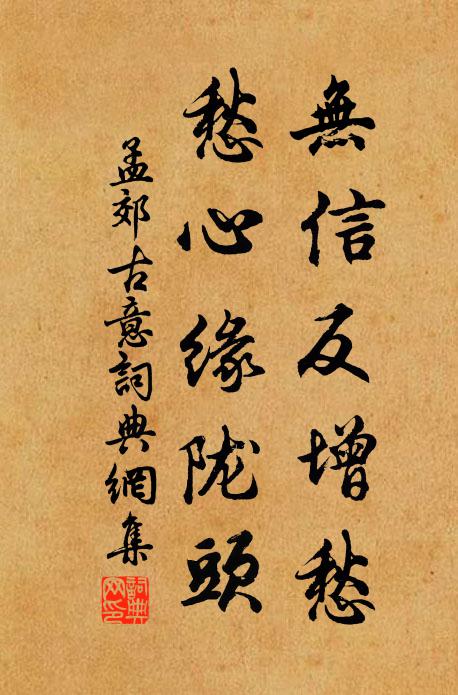 無信反增愁
愁心缘陇頭
孟郊古意詞典網集
詞典
网印